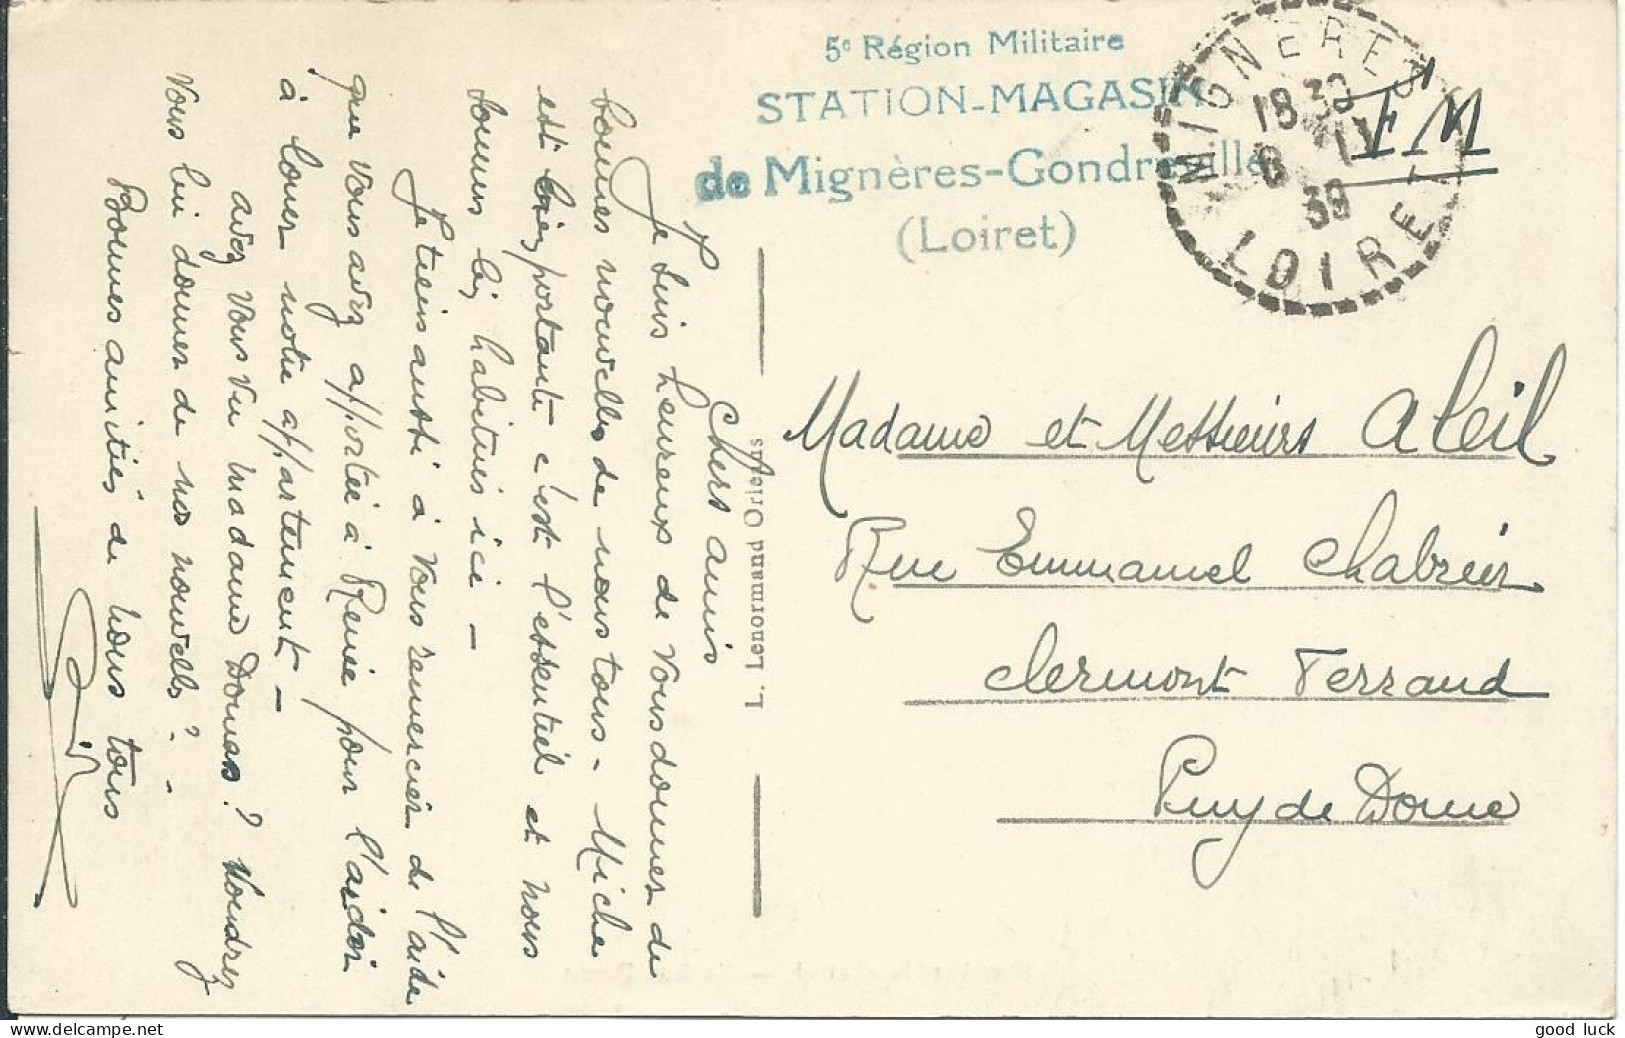 5e Région Militaire
STATION-MAGASIN
de Mignères-Gondreville
(Loiret)
MIGNERES
18 30
6 11
39
LOIRET
FM
Madame et Messieurs Aleil
Rue Emmanuel Chabrier
Clermont Ferrand
Puy de Dome
L. Lenormand Orléans
Chers amis
Je suis heureux de vous donner de
bonnes nouvelles de nous tous - Miche
est bien portante c'est l'essentiel et nous
sommes les habitués ici -
Je tiens aussi à vous remercier de l'aide
que vous avez apportée à Renée pour l'aider
à louer notre appartement -
avez vous vu madame Dumas? Voudrez
vous lui donner de nos nouvelles? -
Bonnes amitiés de nous tous
good luck
delcampe.net